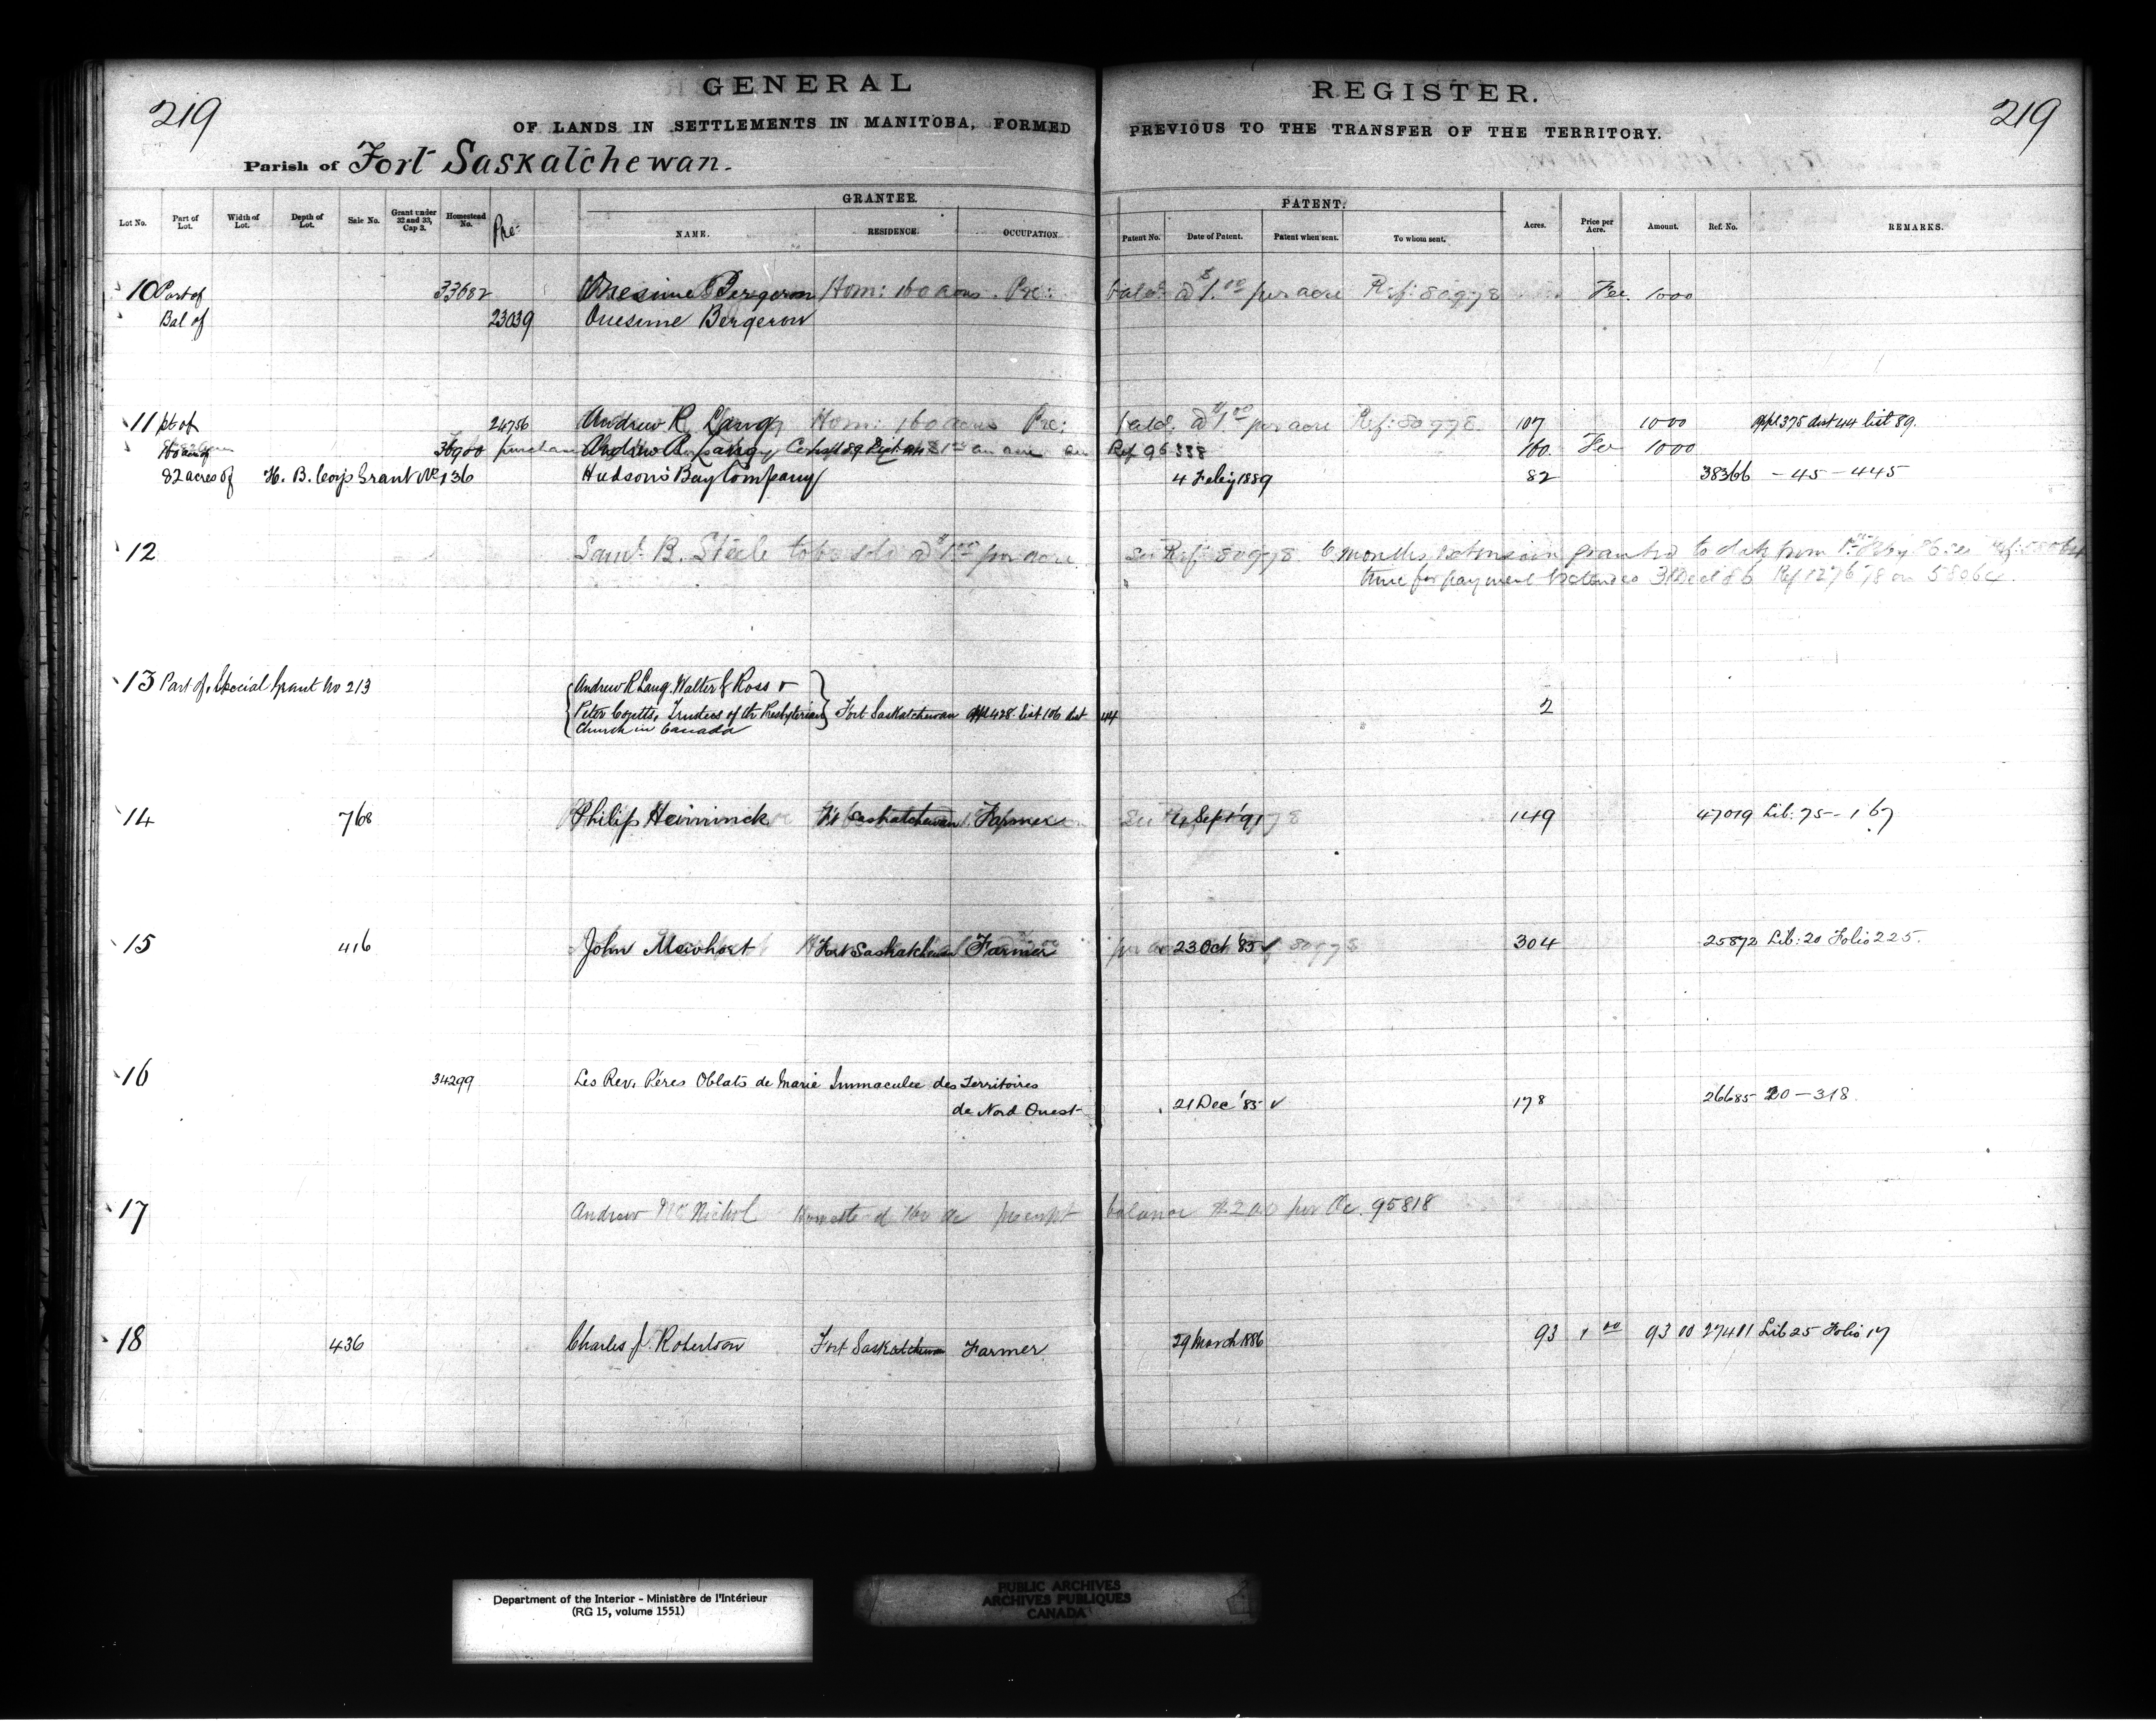 219 GENERAL REGISTER. 219
OF LANDS IN SETTLEMENTS IN MANITOBA, FORMED PREVIOUS TO THE TRANSFER OF THE TERRITORY.
Parish of Fort Saskatchewan.
GRANTEE. PATENT.
Lot No. Part of Lot. Width of Lot. Depth of Lot. Sale No. Grant under 32 and 33, Cap 3. Homestead No. Pre- NAME. RESIDENCE. OCCUPATION. Patent No. Date of Patent. Patent when sent. To whom sent. Acres. Price per Acre. Amount. Ref. No. REMARKS.
10 Part of 33682 Onesime Bergeron Hom: 160 acres. Pre: balce @ $1.00 per acre Ref: 80978 Fee 1000
Bal of 23039 Onesime Bergeron
11 pt of 24756 Andrew R Lang Hom: 160 acres Pre: balce. @ $1.00 per acre Ref: 80978. 107 1000 appl 375 dist 44 list 89.
36900 purchase Andrew R. Lang Ref 96338 160. Fee 1000
82 acres of H. B. Coys Grant No 136 Hudson's Bay Company 4 Feby 1889 82 38366 - 45 - 445
12 Saml. B. Steele to be sold @ $1.00 per acre. See Ref: 80978. 6 months extension granted to date from
time for payment extended 31 Dec 86 Ref 127678 on 58064.
13 Part of, Special Grant No 213 Andrew R Lang. Walter J Ross &
Peter Coutts, Trustees of the Presbyterian Fort Saskatchewan appl 428 list 106 dist 44 2
Church in Canada
14 768 Philip Heiminck Ft Saskatchewan Farmer 4 Sept '91 149 47019 Lib: 75 - 167
15 416 John Mowhort Fort Saskatchewan Farmer 23 Oct '85 ✓ 304 25872 Lib: 20 Folio 225.
16 34299 Les Rev. Péres Oblats de Marie Immaculee des Territoires
de Nord Ouest 21 Dec '85 ✓ 178 26685 20 - 318
17 Andrew McNichol Homestead 160 ac preempt balance $2.00 per Ac. 95818
18 436 Charles J. Robertson Fort Saskatchewan Farmer 29 March 1886 93 1 00 93 00 27411 Lib 25 Folio 17
Department of the Interior - Ministère de l'Intérieur
(RG 15, volume 1551)
PUBLIC ARCHIVES
ARCHIVES PUBLIQUES
CANADA